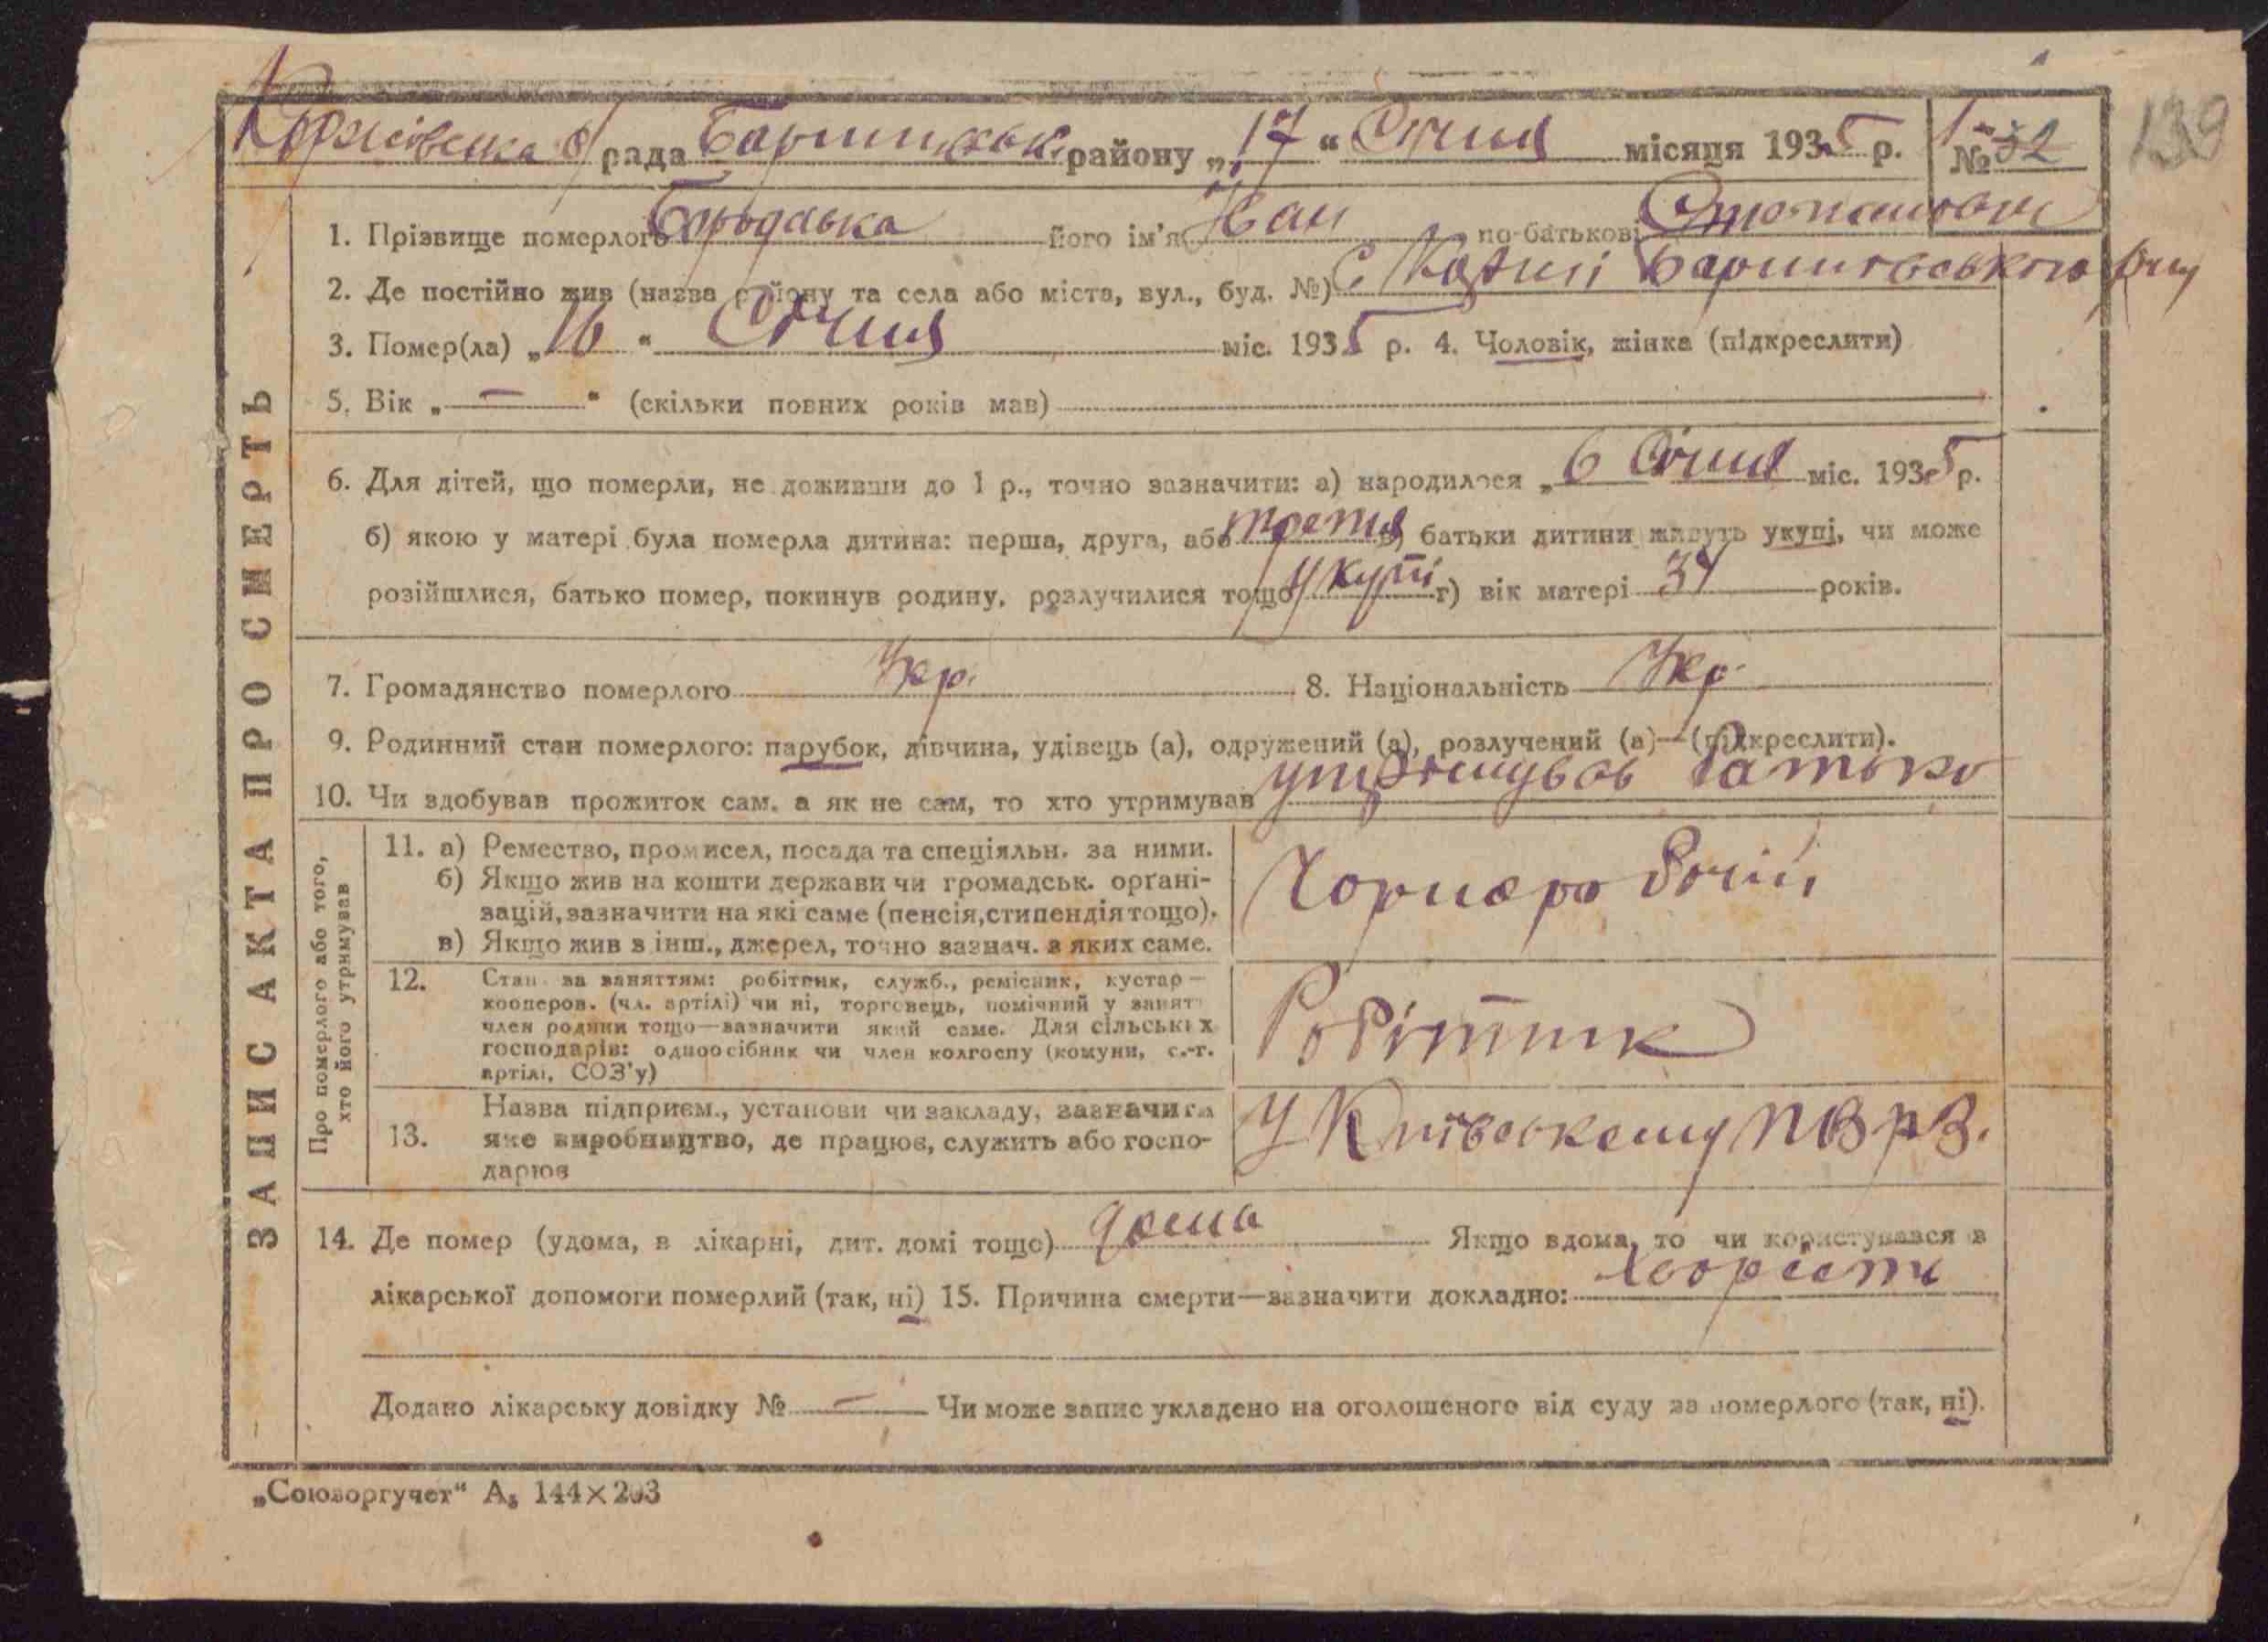 Коржівська с/рада Баришівськ. району „17“ Січня місяця 1935 р. № 32
139
1. Прізвище померлого його ім'я Іван по-батькові Степанович
2. Де постійно жив (назва району та села або міста, вул., буд. №) с. Коржі Баришівського р-ну
3. Помер(ла) „16“ Січня міс. 1935 р. 4. Чоловік, жінка (підкреслити)
5. Вік „—“ (скільки повних років мав)
6. Для дітей, що померли, не доживши до 1 р., точно зазначити: а) народилося „6 Січня міс. 1935 р.
б) якою у матері була померла дитина: перша, друга, або третя в) батьки дитини живуть укупі, чи може
розійшлися, батько помер, покинув родину, розлучилися тощо укупі г) вік матері 34 років.
7. Громадянство померлого Укр. 8. Національність Укр.
9. Родинний стан померлого: парубок, дівчина, удівець (а), одружений (а), розлучений (а)—(підкреслити).
10. Чи здобував прожиток сам, а як не сам, то хто утримував утримував батько
ЗАПИС АКТА ПРО СМЕРТЬ
Про померлого або того,
хто його утримував
11. а) Ремество, промисел, посада та спеціяльн. за ними.
б) Якщо жив на кошти держави чи громадськ. органі-
зацій, зазначити на які саме (пенсія, стипендія тощо).
в) Якщо жив з інш., джерел, точно зазнач. з яких саме.
Чорноробочій
12. Стан за заняттям: робітник, служб., ремісник, кустар—
кооперов. (чл. артілі) чи ні, торговець, помічний у занят.
член родини тощо—зазначити який саме. Для сільських
господарів: одноосібник чи член колгоспу (комуни, с.-г.
артілі, СОЗ'у)
Робітник
13. Назва підприєм., установи чи закладу, зазначити
яке виробництво, де працює, служить або госпо-
дарює
У Київському ПВРЗ.
14. Де помер (удома, в лікарні, дит. домі тощо) дома Якщо вдома, то чи користувався з
лікарської допомоги померлий (так, ні) 15. Причина смерти—зазначити докладно:
Додано лікарську довідку № — Чи може запис укладено на оголошеного від суду за померлого (так, ні).
„Союзоргучет“ А₅ 144×203